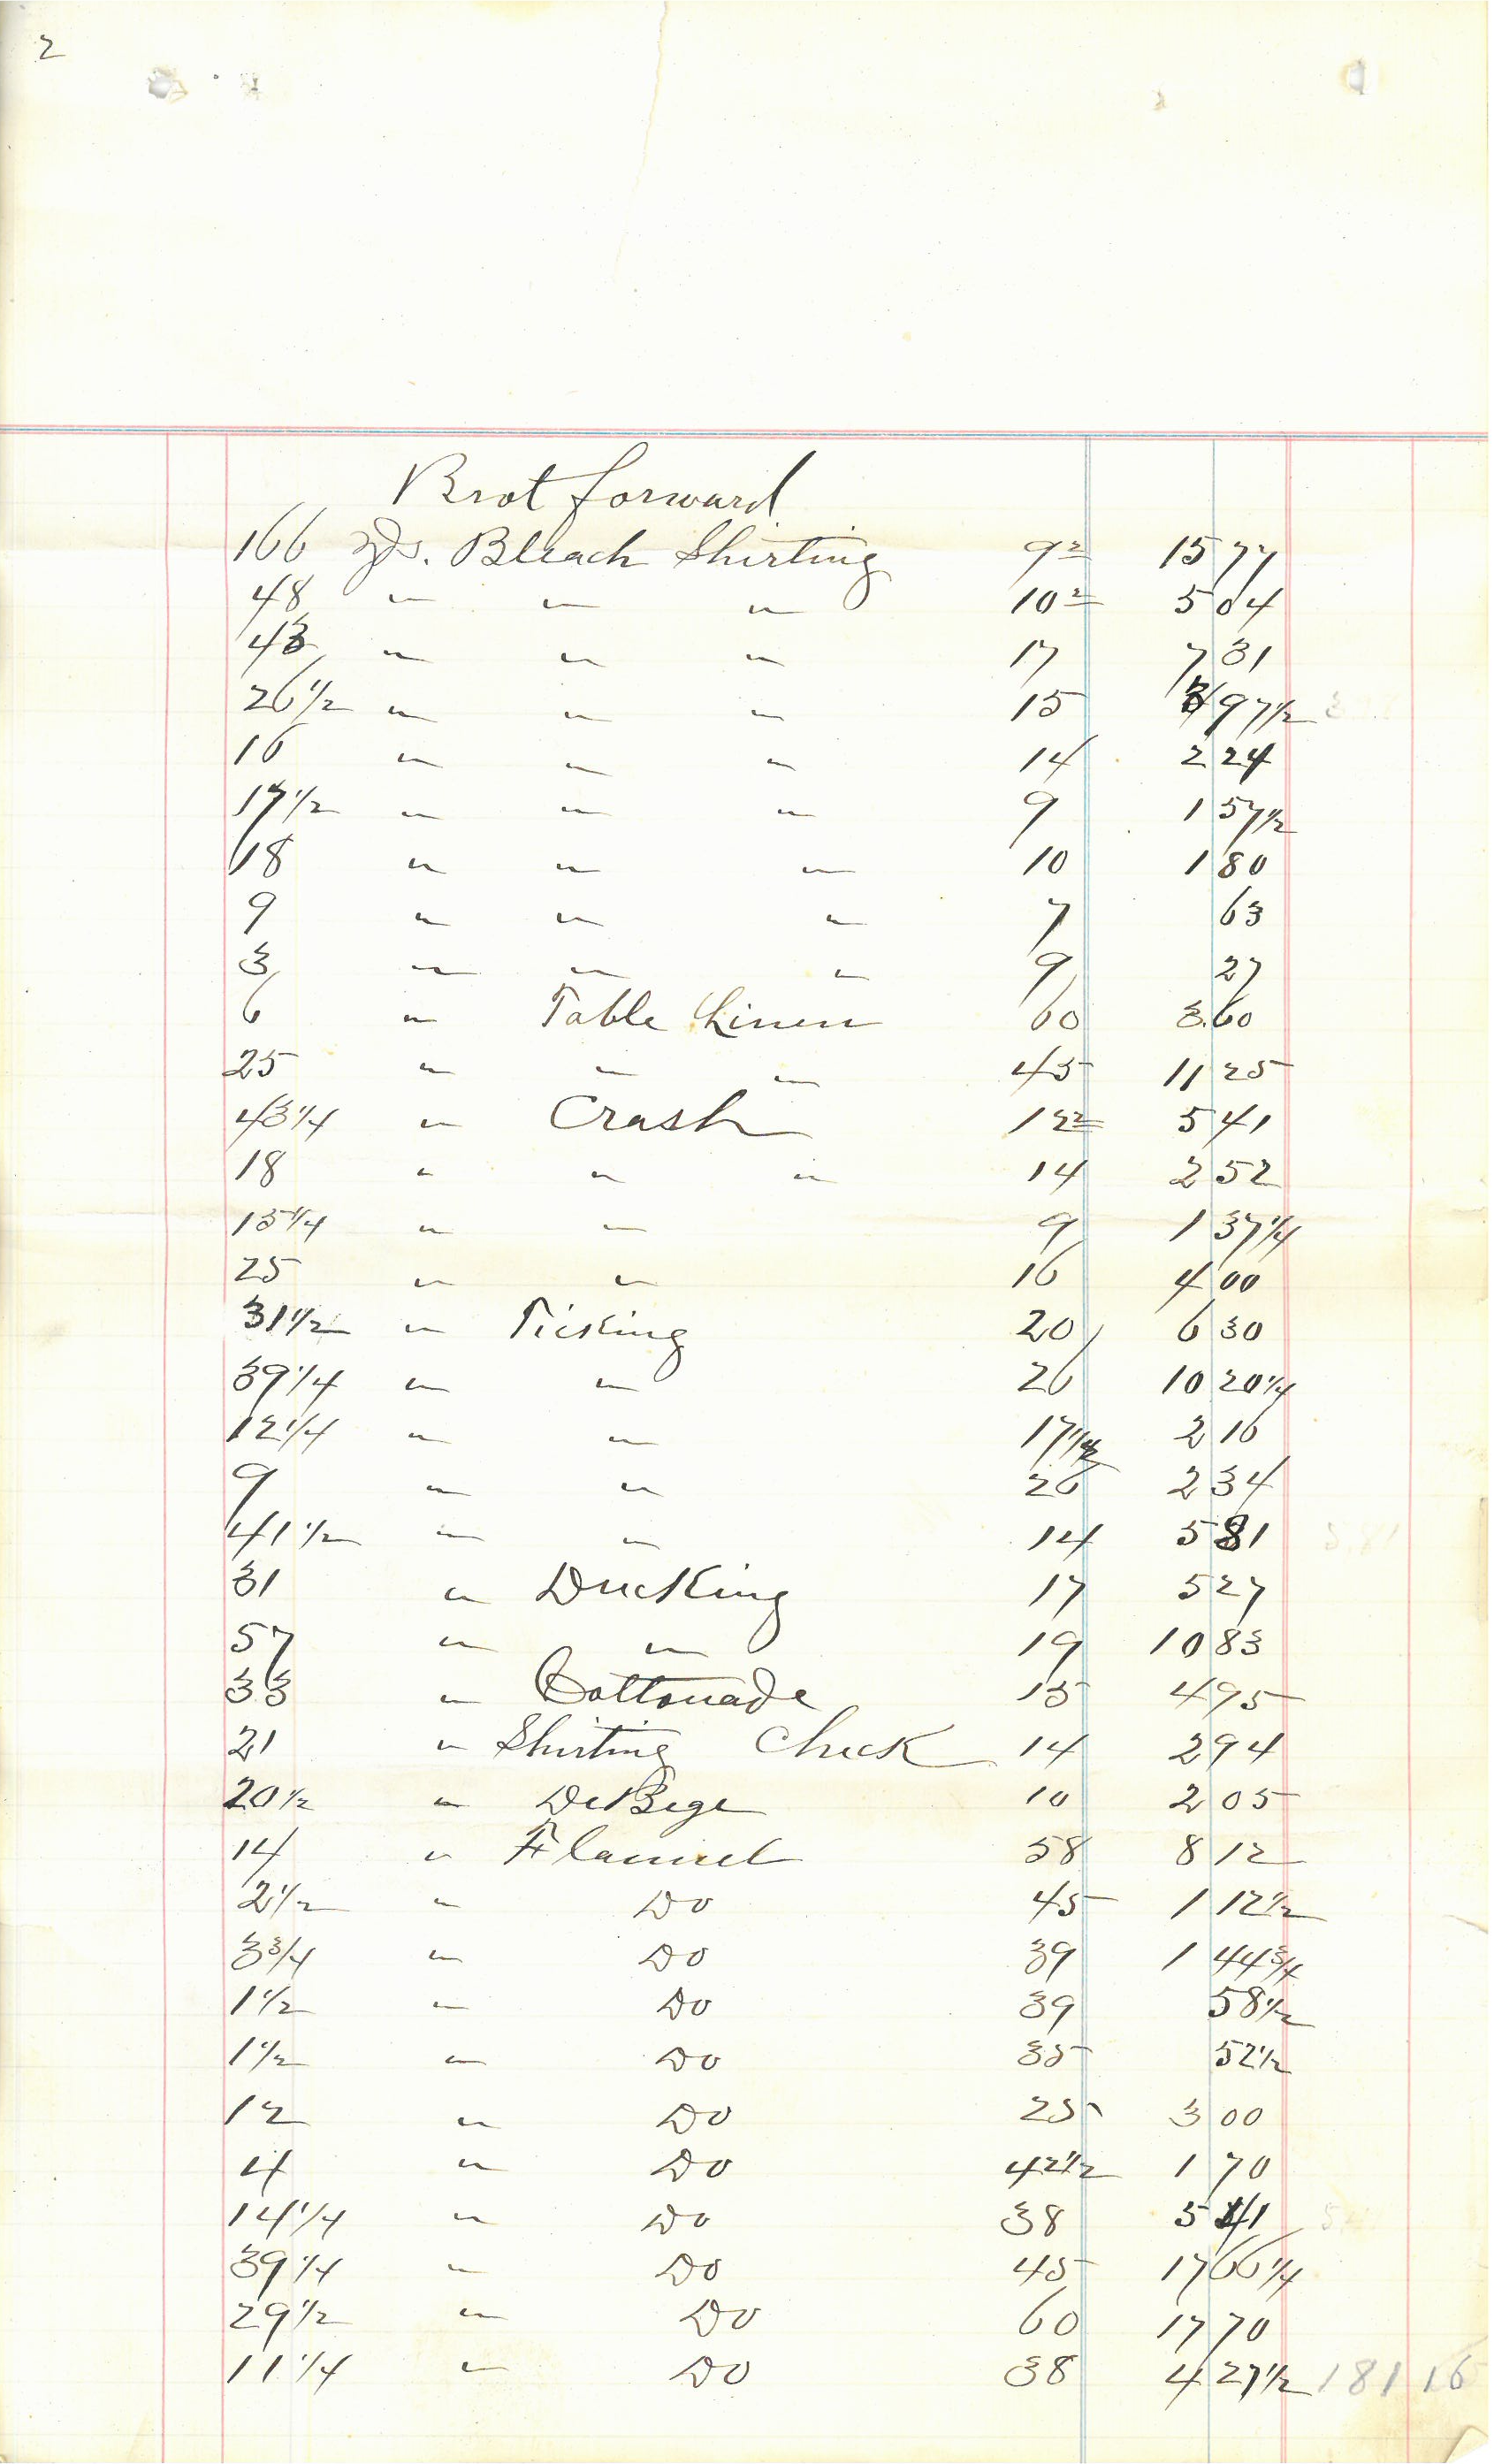 2
Brot forward
166 yds. Bleach Shirting 9 2 15 77
48 " " " 10 2 5 04
43 " " " 17 7 31
26 1/2 " " " 15 3 97 1/2
16 " " " 14 2 24
17 1/2 " " " 9 1 57 1/2
18 " " " 10 1 80
9 " " " 7 63
3 " " " 9 27
6 " Table Linen 60 3.60
25 " " " 45 11 25
43 1/4 " Crash 12 2 5 41
18 " " " 14 2 52
15 1/4 " " 9 1 37 1/4
25 " " 16 4 00
31 1/2 " Ticking 20 6 30
39 1/4 " " 26 10 20 1/4
12 1/4 " " 17 1/2 2 16
9 " " 26 2 34
41 1/2 " " 14 5 81 5,81
31 " Ducking 17 5 27
57 " " 19 10 83
33 " Cottonade 15 4 95
21 " Shirting Check 14 2 94
20 1/2 " DeBege 10 2 05
14 " Flannel 58 8 12
2 1/2 " Do 45 1 12 1/2
3 3/4 " Do 39 1 44 3/4
1 1/2 " Do 39 58 1/2
1 1/2 " Do 35 52 1/2
12 " Do 25 3 00
4 " Do 42 1/2 1 70
14 1/4 " Do 38 5 41
39 1/4 " Do 45 17 66 1/4
29 1/2 " Do 60 17 70
11 1/4 " Do 38 4 27 1/2 181 16